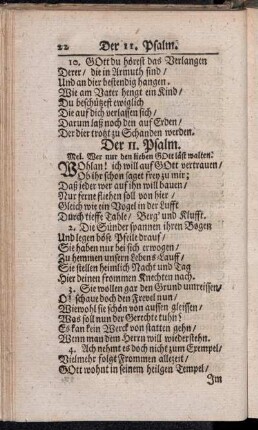 22 Der 11. Psalm.
10. GOtt du hörest das Verlangen
Derer/ die in Armuth sind/
Und an dier bestendig hangen.
Wie am Vater hengt ein Kind/
Du beschützest ewiglich
Die auf dich verlassen sich/
Darum laß noch den auf Erden/
Der dier trotzt zu Schanden werden.
Der 11. Psalm.
Mel. Wer nur den lieben GOtt läst walten.
WOhlan! ich will auf GOtt vertrauen/
Ob ihr schon saget frey zu mir;
Daß jeder wer auf ihn will bauen/
Nur ferne fliehen soll von hier/
Gleich wie ein Vogel in der Lufft
Durch tieffe Thäle/ Berg' und Klufft.
2. Die Sünder spannen ihren Bogen
Und legen böse Pfeile drauf/
Sie haben nur bei sich erwogen/
Zu hemmen unsern Lebens-Lauff/
Sie stellen heimlich Nacht und Tag
Hier deinen frommen Knechten nach.
3. Sie wollen gar den Grund umreissen/
O! schaue doch den Frevel nun/
Wiewohl sie schön von aussen gleissen/
Was soll nun der Gerechte tuhn?
Es kan kein Werck von statten gehn/
Wenn man dem Herrn will wiederstehn.
4. Ach nehmt es doch nicht zum Exempel/
Vielmehr folgt Frommen allezeit/
GOtt wohnt in seinem heilgen Tempel/
Im